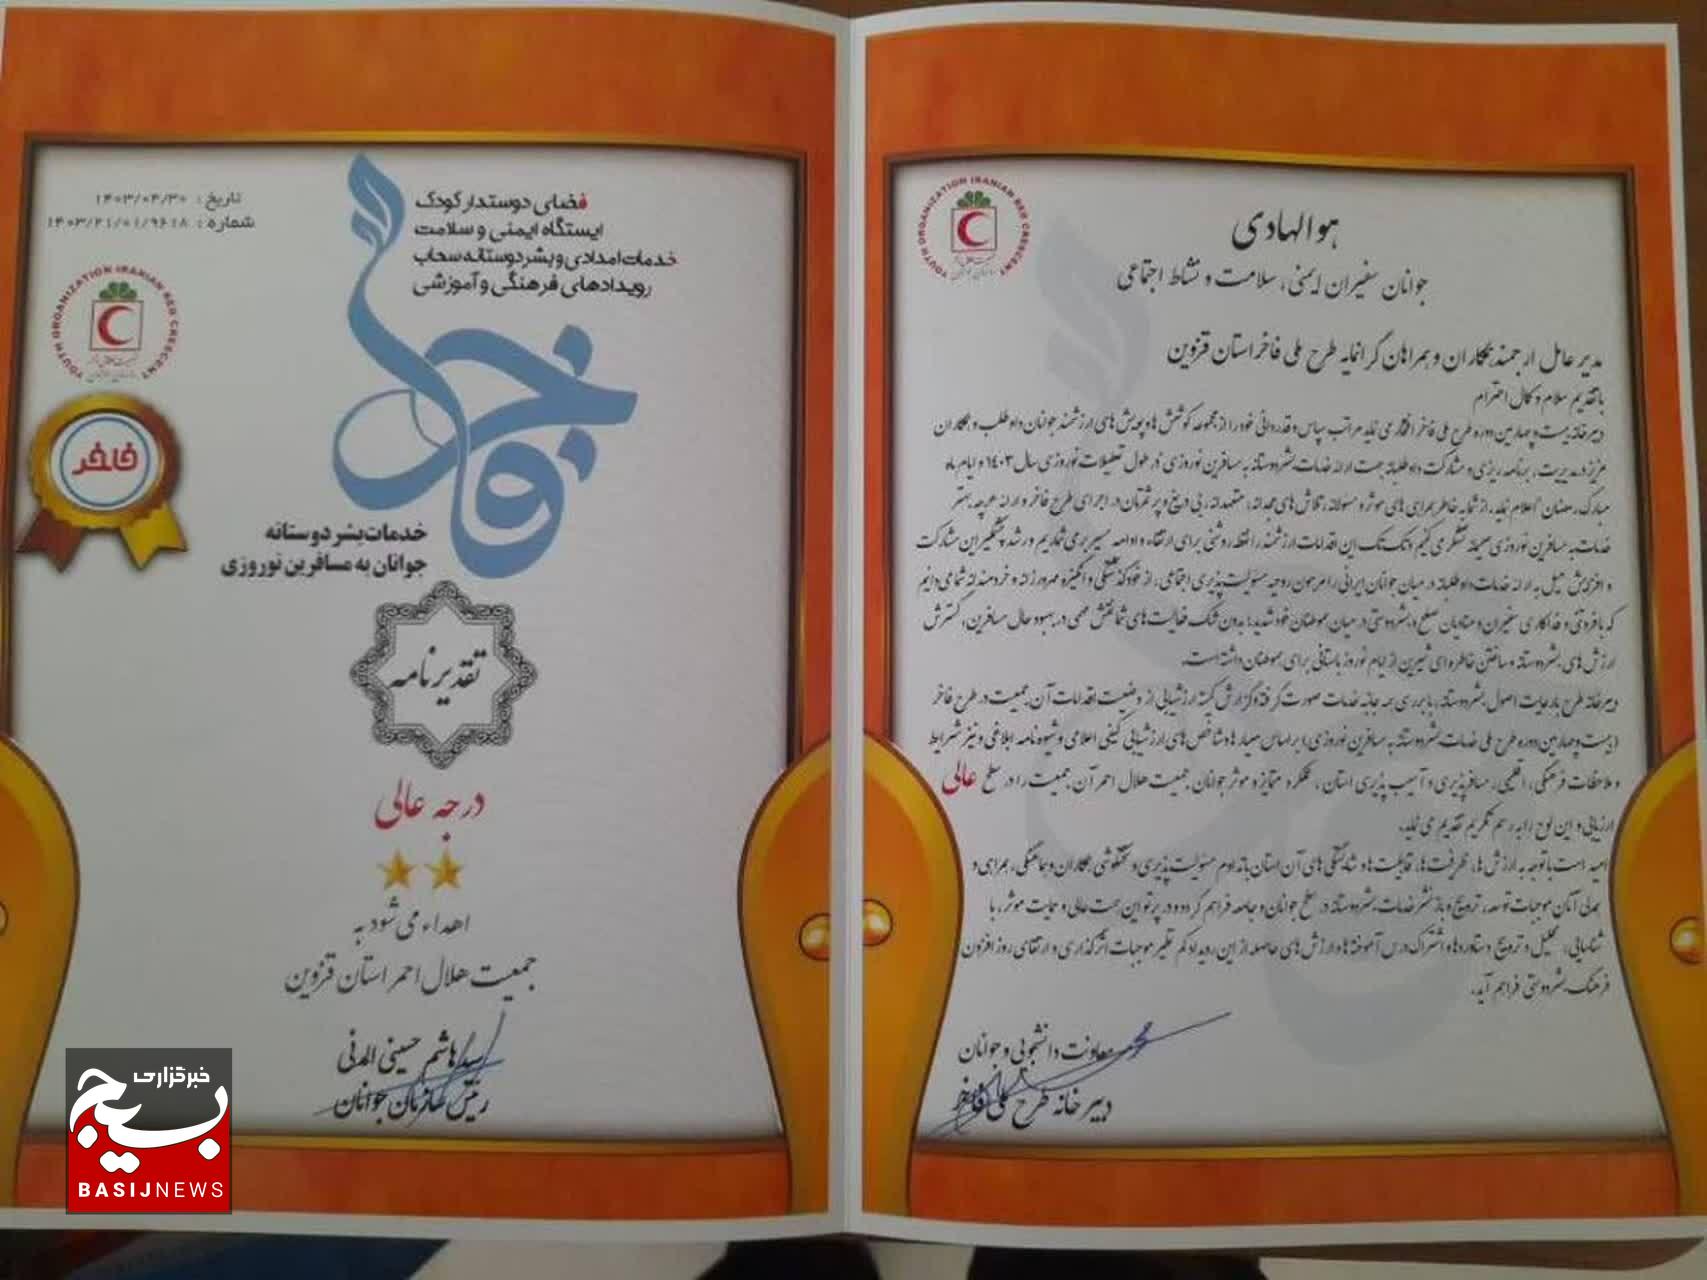 هوالهادی
جوانان سفیران ایمنی، سلامت و نشاط اجتماعی
مدیر عامل ارجمند، همکاران و همراهان گرانمایه طرح ملی فاخر استان قزوین
با تقدیم سلام و کمال احترام
دبیرخانه بیست و چهارمین دوره طرح ملی فاخر افتخار می نماید مراتب سپاس و قدردانی خود را از مجموعه کوشش ها و پویش های ارزشمند جوانان داوطلب و همکاران
عزیز در مدیریت، برنامه ریزی و مشارکت داوطلبانه جهت ارائه خدمات بشردوستانه به مسافرین نوروزی در طول تعطیلات نوروزی سال ۱۴۰۳ و ایام ماه
مبارک رمضان اعلام نماید. از شما به خاطر همراهی های موثر و مسئولانه، تلاش های مجدانه، متعهدانه، بی دریغ و پرثمرتان در اجرای طرح فاخر و ارائه هرچه بهتر
خدمات به مسافرین نوروزی صمیمانه تشکر می کنیم و تک تک این اقدامات ارزشمند را نقطه روشنی برای ارتقاء و ادامه مسیر برمی شماریم و رشد چشمگیر این مشارکت
و افزایش میل به ارائه خدمات داوطلبانه در میان جوانان ایرانی را مرهون روحیه مسئولیت پذیری اجتماعی، از خودگذشتگی و انگیزه مهرورزانه و خردمندانه شما می دانیم
که با فروتنی و فداکاری سفیران و منادیان صلح و بشردوستی در میان هموطنان خود شدید؛ بدون شک فعالیت های شما نقش مهمی در بهبود حال مسافرین، گسترش
ارزش های بشردوستانه و ساختن خاطره ای شیرین از ایام نوروز باستانی برای هموطنان داشته است.
دبیرخانه طرح با رعایت اصول بشردوستانه، با بررسی همه جانبه خدمات صورت گرفته و گزارش کمیته ارزشیابی از وضعیت اقدامات آن جمعیت در طرح فاخر
(بیست و چهارمین دوره طرح ملی خدمات بشردوستانه به مسافرین نوروزی) بر اساس معیارها و شاخص های ارزشیابی کیفی اعلامی و شیوه نامه ابلاغی و نیز شرایط
و ملاحظات فرهنگی، اقلیمی، مسافرپذیری و آسیب پذیری استان، عملکرد متمایز و موثر جوانان جمعیت هلال احمر آن جمعیت را در سطح عالی
ارزیابی و این لوح را به رسم تکریم تقدیم می نماید.
امید است با توجه به ارزش ها، ظرفیت ها، قابلیت ها و شایستگی های آن استان با تداوم مسئولیت پذیری و سختکوشی همکاران و هماهنگی، همراهی و
همدلی آنان موجبات توسعه، ترویج و بازنشر خدمات بشردوستانه در سطح جوانان و جامعه فراهم گردد و در پرتو این همت عالی و حمایت موثر، با
شناسایی، تحلیل و ترویج دستاوردها و اشتراک درس آموخته ها و ارزش های حاصله از این رویداد کم نظیر موجبات اثرگذاری و ارتقای روزافزون
فرهنگ بشردوستی فراهم آید.
معاونت دانشجویی و جوانان
دبیرخانه طرح ملی فاخر
YOUTH ORGANIZATION IRANIAN RED CRESCENT
تاریخ : ۱۴۰۳/۰۴/۳۰
شماره : ۱۴۰۳/۲۱/۰۱/۹۶۱۸
فضای دوستدار کودک
ایستگاه ایمنی و سلامت
خدمات امدادی و بشردوستانه سحاب
رویدادهای فرهنگی و آموزشی
YOUTH ORGANIZATION IRANIAN RED CRESCENT
فاخر
فاخر
خدمات بشردوستانه
جوانان به مسافرین نوروزی
تقدیرنامه
درجه عالی
اهداء می شود به
جمعیت هلال احمر استان قزوین
سید هاشم حسینی المدنی
رئیس سازمان جوانان
خبرگزاری
بسیج
BASIJNEWS